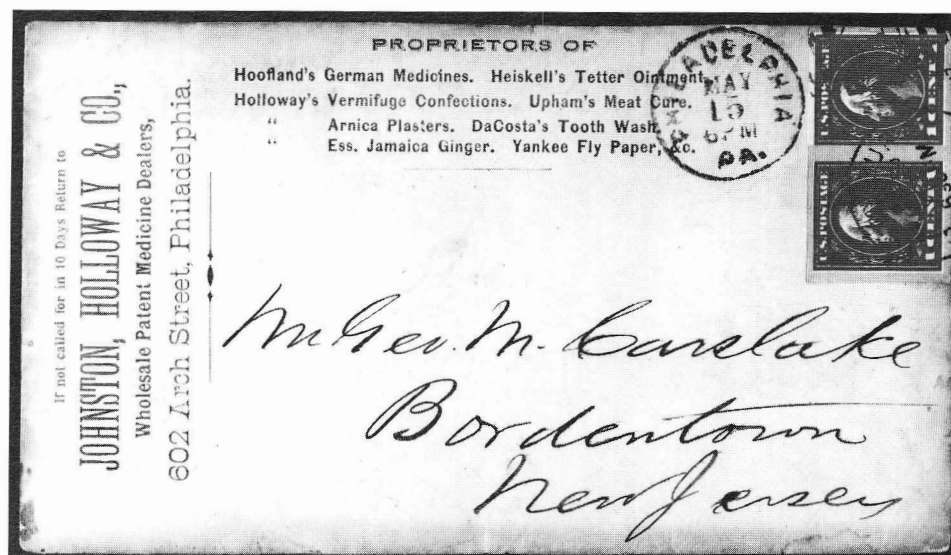 If not called for in 10 Days Return to
JOHNSTON, HOLLOWAY & CO.,
Wholesale Patent Medicine Dealers,
602 Arch Street, Philadelphia.
PROPRIETORS OF
Hoofland's German Medicines. Heiskell's Tetter Ointment.
Holloway's Vermifuge Confections. Upham's Meat Cure.
" Arnica Plasters. DaCosta's Tooth Wash.
" Ess. Jamaica Ginger. Yankee Fly Paper, &c.
PHILADELPHIA
MAY
15
6 PM
PA.
U.S. POSTAGE
U.S. POSTAGE
Mr Geo. M. Carslake
Bordentown
New Jersey